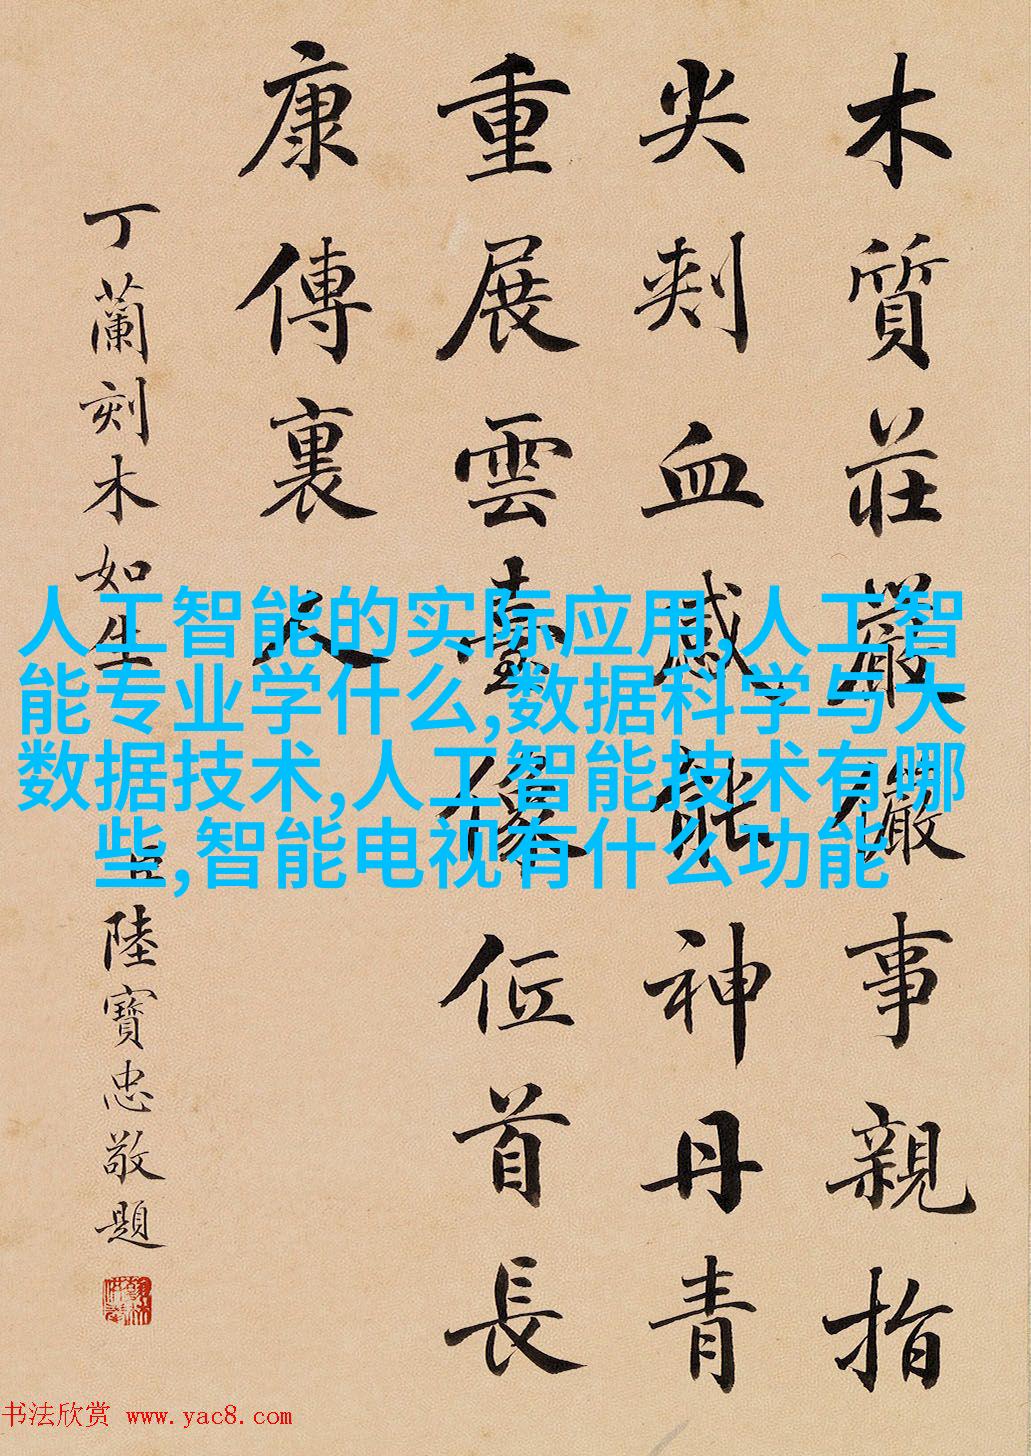 木質莊嚴儼事親指
尖刾血感能神丹青
重展雲臺像低首長
康傳裏人
丁蘭刻木如生 臣陸寶忠敬題
人工智能的实际应用,人工智
能专业学什么,数据科学与大
数据技术,人工智能技术有哪
些,智能电视有什么功能
书法欣赏 www.yac8.com